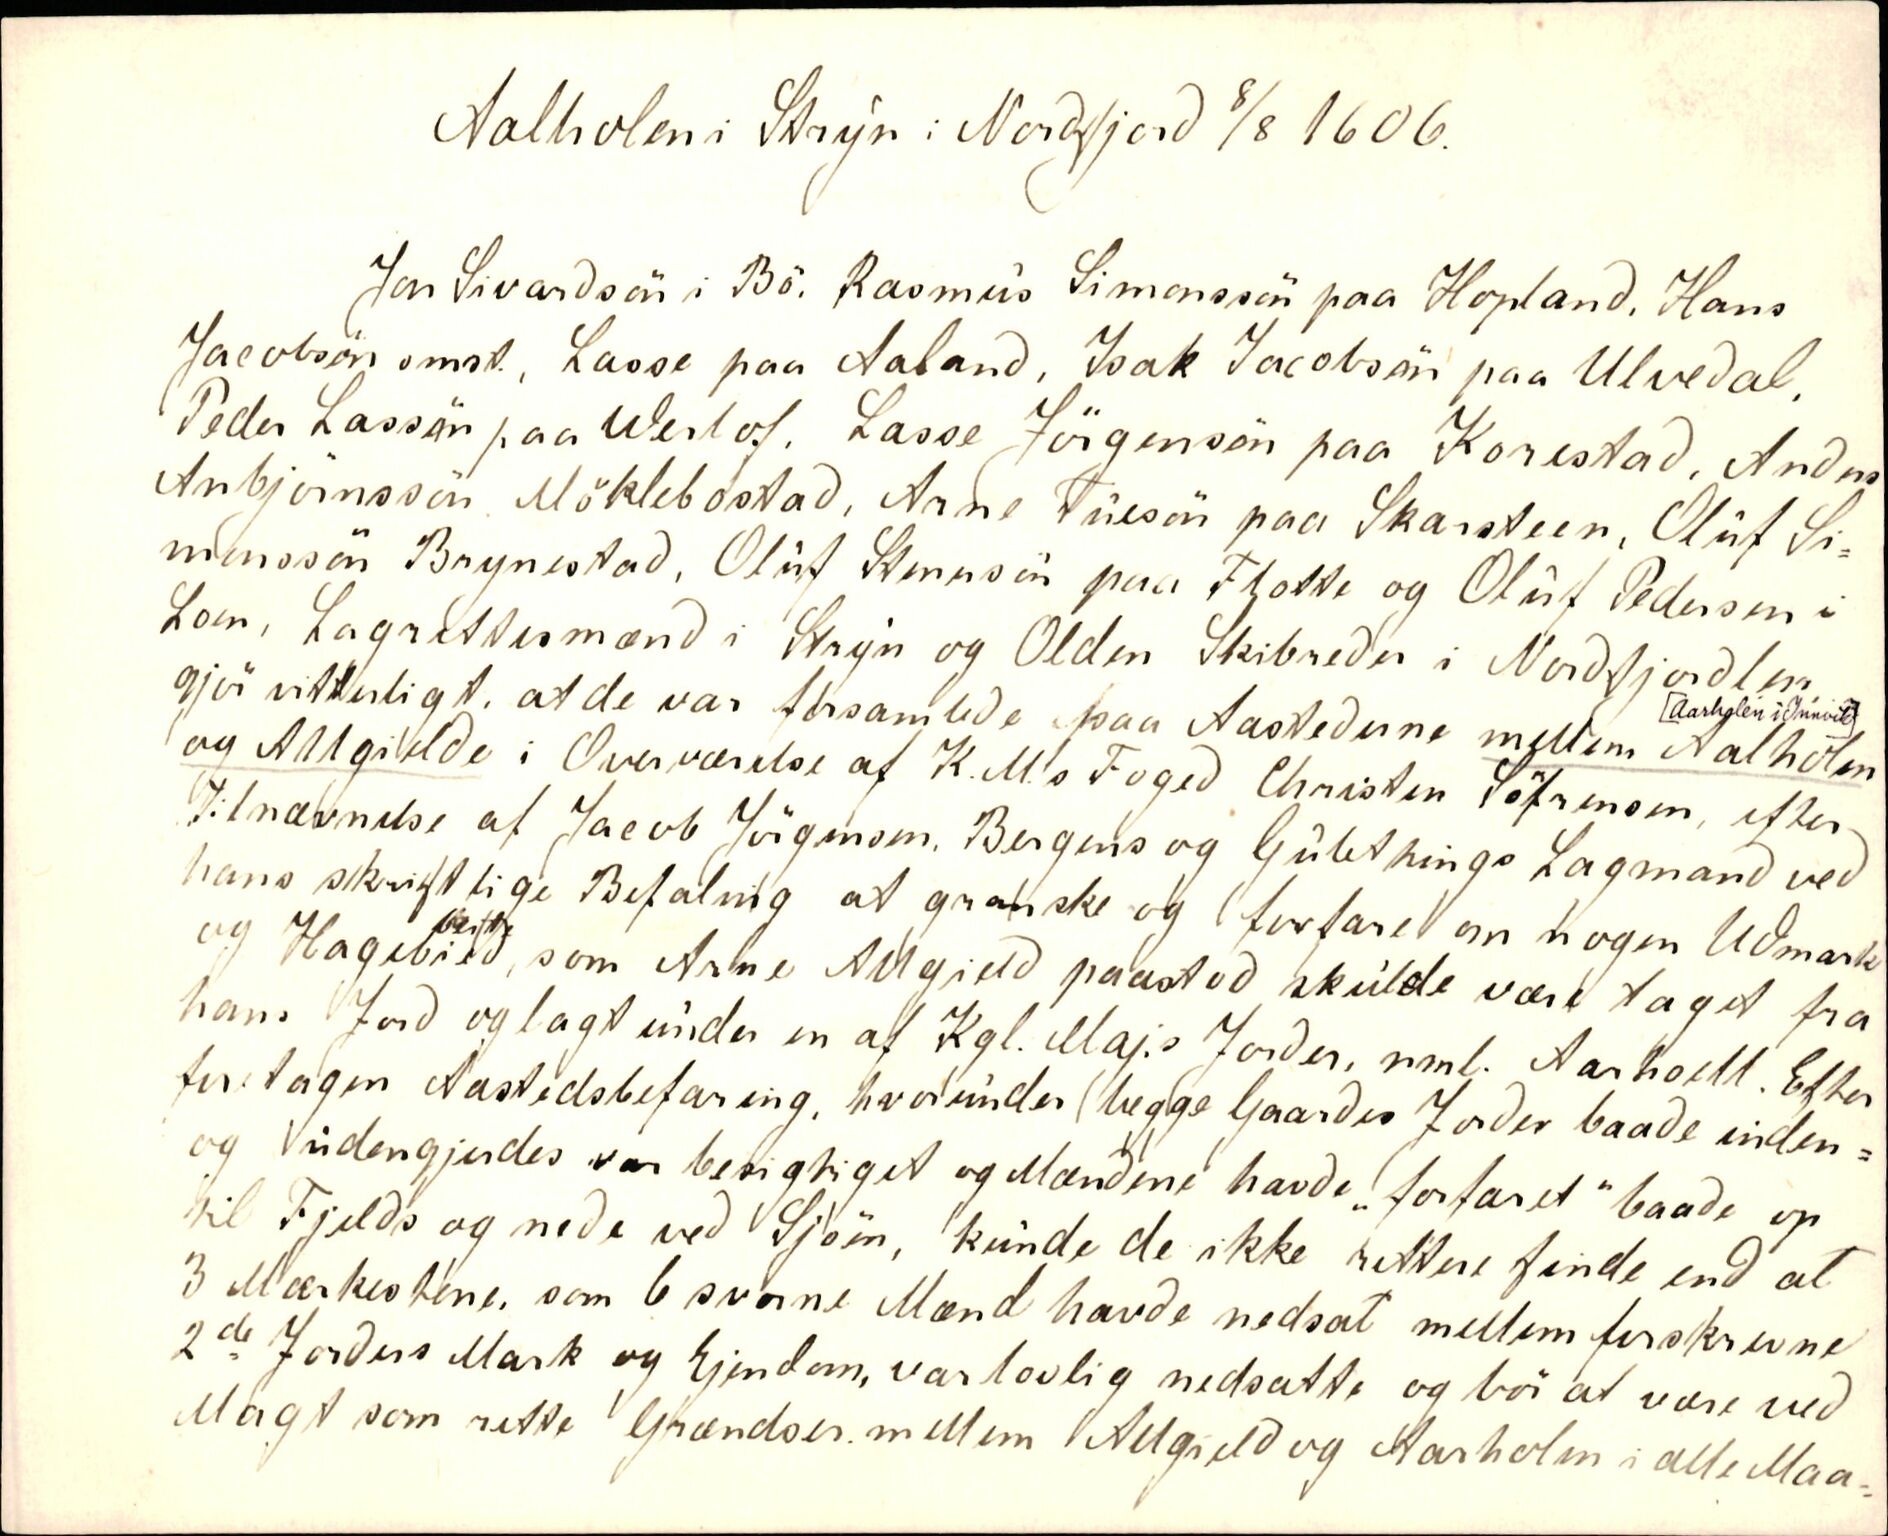 Aalholen i Stryn i Nordfjord 8/8 1606.
Jon Sivardsön i Bö. Rasmus Simonssön paa Hopland, Hans
Jacobsön smst., Lasse paa Aaland, Isak Jacobsön paa Ulvedal,
Peder Lassön paa Werlof. Lasse Jörgensön paa Korestad, Anders
Anbjörnssön Möklebostad, Arne Tuesön paa Skarsteen, Oluf Si=
monssön Brynestad, Oluf Stenersön paa Flotte og Oluf Pedersen i
Loen, Lagrettesmænd i Stryn og Olden Skibreder i Nordfjordlen
gjör vitterligt. at de var forsamlede paa Aastederne mellem Aalholen
[Aarholen i Innvik]
og Allgielde i Overværelse af K.M.s Foged Christen Söfrensen, efter
Tilnævnelse af Jacob Jörgensen, Bergens og Gulethings Lagmand ved
hans skriftlige Befalnig at granske og forfare om nogen Udmark
og Hagebied, som Arne Allgield paastod skulde være taget fra
beite
hans Jord og lagt under en af Kgl. Maj.s Jorder, nml. Aarhoell. Efter
foretagen Aastedsbefaring, hvorunder begge Gaardes Jorder baade inden=
og udengjerdes var besigtiget og Mændene havde „forfaret" baade op
til Fjelds og nede ved Sjöen, kunde de ikke rettere finde end at
3 Merkestene, som 6 svorne Mænd havde nedsat mellem forskrevne
2de Jorders Mark og Ejendom, var lovlig nedsatte og bör at være ved
Magt som rette Grændser mellem Allgield og Aarholen i alle Maa=